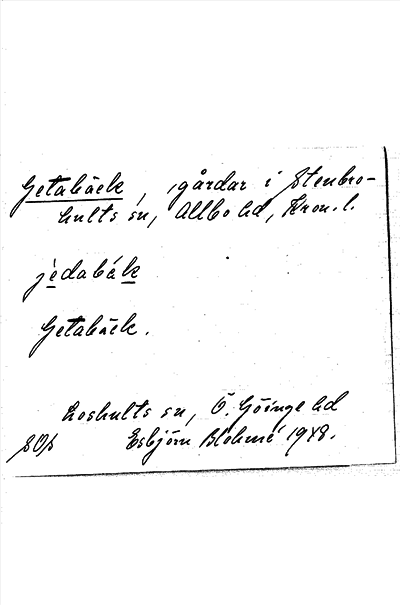 Getabäck, gårdar i Stenbro-
hults sn, Allbo hd, Kron. l.
jèdabák
Getabäck.
Loshults sn, Ö. Göinge hd
SOp Esbjörn Blohmé 1948.